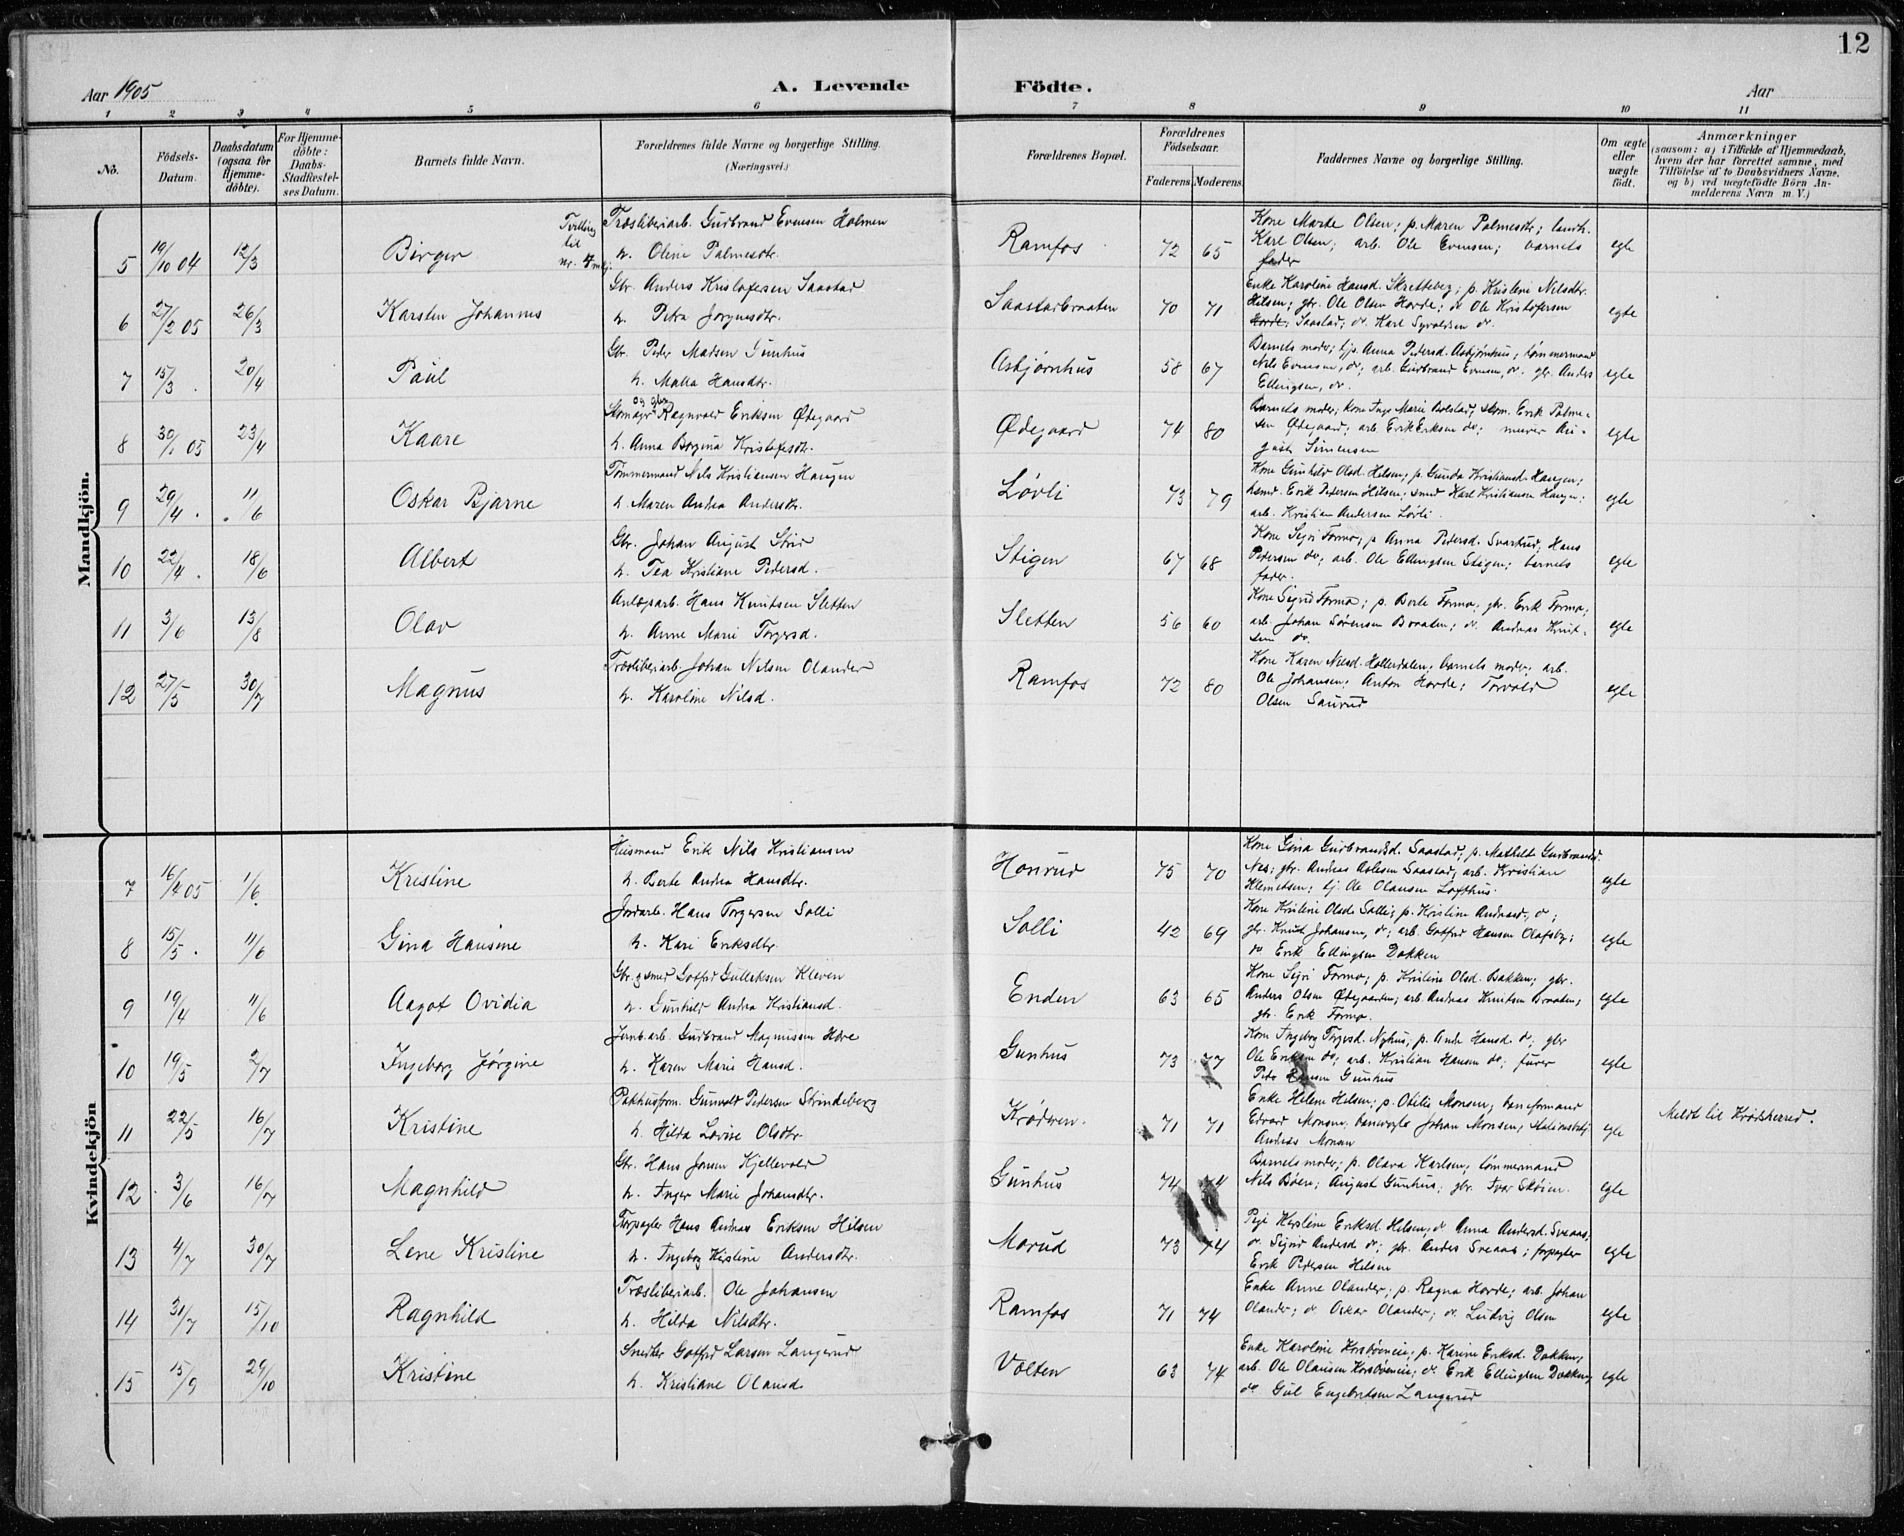 12
Aar 1905
A. Levende
Födte.
Aar
1 2 3 4 5 6 7 8 9 10 11
No.
Födsels-Datum.
Daabsdatum (ogsaa for Hjemme-döbte).
For Hjemme-döbte: Daabs-Stadfæstel-ses Datum.
Barnets fulde Navn.
Forældrenes fulde Navne og borgerlige Stilling. (Næringsvei.)
Forældrenes Bopæl.
Forældrenes Födselsaar.
Faderens Moderens
Faddernes Navne og borgerlige Stilling.
Om ægte eller uægte födt.
Anmærkninger
(saasom: a) i Tilfælde af Hjemmedaab, hvem der har forrettet samme, med Tilföielse af to Daabsvidners Navne, og b) ved uægtefödte Börn An-melderens Navn m. V.)
Mandkjön.
5 19/10 04 12/3 Birger Tvilling til nr. 4 Træsliberiarb. Gudbrand Evensen Holmen
h. Oline Palmesdtr. Ramfos 72 65 Kone Marte Olsen; p. Maren Palmesdtr; landh.
Karl Olsen; arb. Ole Evensen; barnets
fader egte
6 27/2 05 26/3 Karsten Johannes Gbr. Anders Kristofersen Saastad
h. Petra Jørgensdtr. Saastadbraaten 70 71 Enke Karoline Hansd. Skretteberg; p. Kristine Nilsdtr.
Hilsen; gbr. Ole Olsen Horde; do Ole Kristofersen
Horde, Saastad; do. Karl Syvaldsen do. egte
7 15/3 . 20/4 Paul Gbr. Peder Madsen Gunhus
h. Malla Hansdtr. Asbjørnhus 58 67 Barnets moder; tjp. Anna Pedersd. Asbjørnhus; tømmermand
Nils Evensen, do; arb. Gudbrand Evensen, do. gbr. Anders
Ellingsen, do. egte
8 30/1 05 23/4 Kaare Skomager og gbr. Ragnvald Eriksen Ødegaard
h. Anna Bogina Kristofersdtr. Ødegaard 74 80 Barnets moder; kone Inge Marie Bolstad; skom. Erik Palme-
sen Ødegaard; arb. Erik Eriksen do; murer Au-
gust Simensen egte
9 29/4 . 11/6 Oskar Bjarne Tømmermand Nils Kristiansen Haugen
h. Maren Andrea Andersdtr. Løvli 73 79 Kone Gunhild Olsd. Hilsen; p. Gunda Kristiansd. Haugen;
husmd. Erik Pedersen Hilsen; smed Karl Kristiansen Haugen;
arb. Kristian Andersen Løvli. egte
10 22/4 . 18/6 Albert Gbr. Johan August Strid
h. Tea Kristiane Pedersd. Stigen 67 68 Kone Sigri Formo; p Anna Pedersd. Svartrud; Hans
Pedersen do; arb. Ole Ellingsen Stigen; barnets
fader. egte
11 3/6 13/8 Olav Anlægsarb. Hans Knutsen Sletten
h. Anne Marie Torgersd. Sletten 56 60 Kone Sigrid Formo; p. Berte Formo, gbr. Erik Formo;
arb. Johan Sørensen Braaten; do. Andreas Knut-
sen do. egte
12 27/5 30/7 Magnus Træsliberiarb. Johan Nilsen Olander
h. Karoline Nilsd. Ramfos 72 80 Kone Karen Nilsd. Hollerdalen; barnets moder, arb.
Ole Johansen; Anton Horde; Torvald
Olsen Saurud egte
Kvindekjön
7 16/4 05 1/6. Kristine Husmand Erik Nils Kristiansen
h. Berte Andrea Hansdtr. Honrud 75 70 Kone Gina Gudbrandsd. Saastad; p. Mathilde Gudbrandsd.
Nes; gbr. Andreas Solesen Saastad; arb. Kristian
Klemetsen; tj. Ole Olausen Lofthus. egte
8 15/5 . 11/6 Gina Hansine Jordarb. Hans Torgersen Solli
h. Kari Eriksdtr. Solli 42 69 Kone Kristine Olsd. Solli; p. Kristine Andersd., do;
gbr. Knut Johansen, do; arb. Gotfred Hansen Olafsby;
do Erik Ellingsen Dokken egte
9 19/4 11/6 Aagot Ovidia Gbr. g smed Gotfred Gulleksen Kleven
h. Gunhild Andrea Kristiansd. Enden 63 65 Kone Sigri Formo; p. Kristine Olsd. Bakken; gbr.
Anders Olsen Ødegaarden; arb. Andreas Knutsen Braaten;
gbr. Erik Formo. egte
10 19/5 2/7 Ingeborg Jørgine Jernb.arb. Gudbrand Magnussen Hove
h. Karen Marie Hansd. Gunhus 73 77 Kone Ingeborg Torgersd. Nyhus; p. Anne Hansd do; gbr
Ole Eriksen do; arb. Kristian Hansen do; furer
Peder Hansen Gunhus egte
11 22/5 16/7 Kristine Pakhusform. Gunvald Pedersen Strindeberg
h. Hilda Lovise Olsdtr. Krøderen. 71 71 Enke Helene Hilsen; p. Otilie Monsen; baneformand
Edvard Monsen; banevogte Johan Monsen; stationsbetj.
Andreas Monsen egte Meldt til Krødsherred.
12 3/6 16/7 Magnhild Gbr. Hans Jonsen Kjellevold
h. Inger Marie Johansdtr. Gunhus 74 74 Barnets moder; p. Olava Karlsen; tømmermand
Nils Bøere; August Gunhus; gbr. Ivar Skøien. egte
13 4/7 30/7 Lene Kristine Forpagter Hans Andreas Eriksen Hilsen
h. Ingeborg Kirstine Andersdtr. Morud 73 74 Pige Kirstine Eriksd. Hilsen; do Anna Andersd. Sveaas;
do. Sigrid Andersd do; gbr. Anders Sveaas; forpagter
Erik Pedersen Hilsen egte
14 31/7 15/10 Ragnhild Træsliberiarb. Ole Johansen
h. Hilda Nilsdtr. Ramfos 71 74 Enke Anne Olander; p. Ragna Horde; arb. Johan
Olander; do Oskar Olander; do. Ludvig Olsen egte
15 15/9 29/10 Kristine Snedker Gotfred Larsen Langerud
h. Kristiane Olausd. Volten 63 74 Enke Karoline Korsbøeneie; p. Karine Eriksd. Dokken;
arb. Ole Olausen Korsbøeneie; do. Erik Ellingsen Dokken;
do Gul Engebretsen Langerud egte